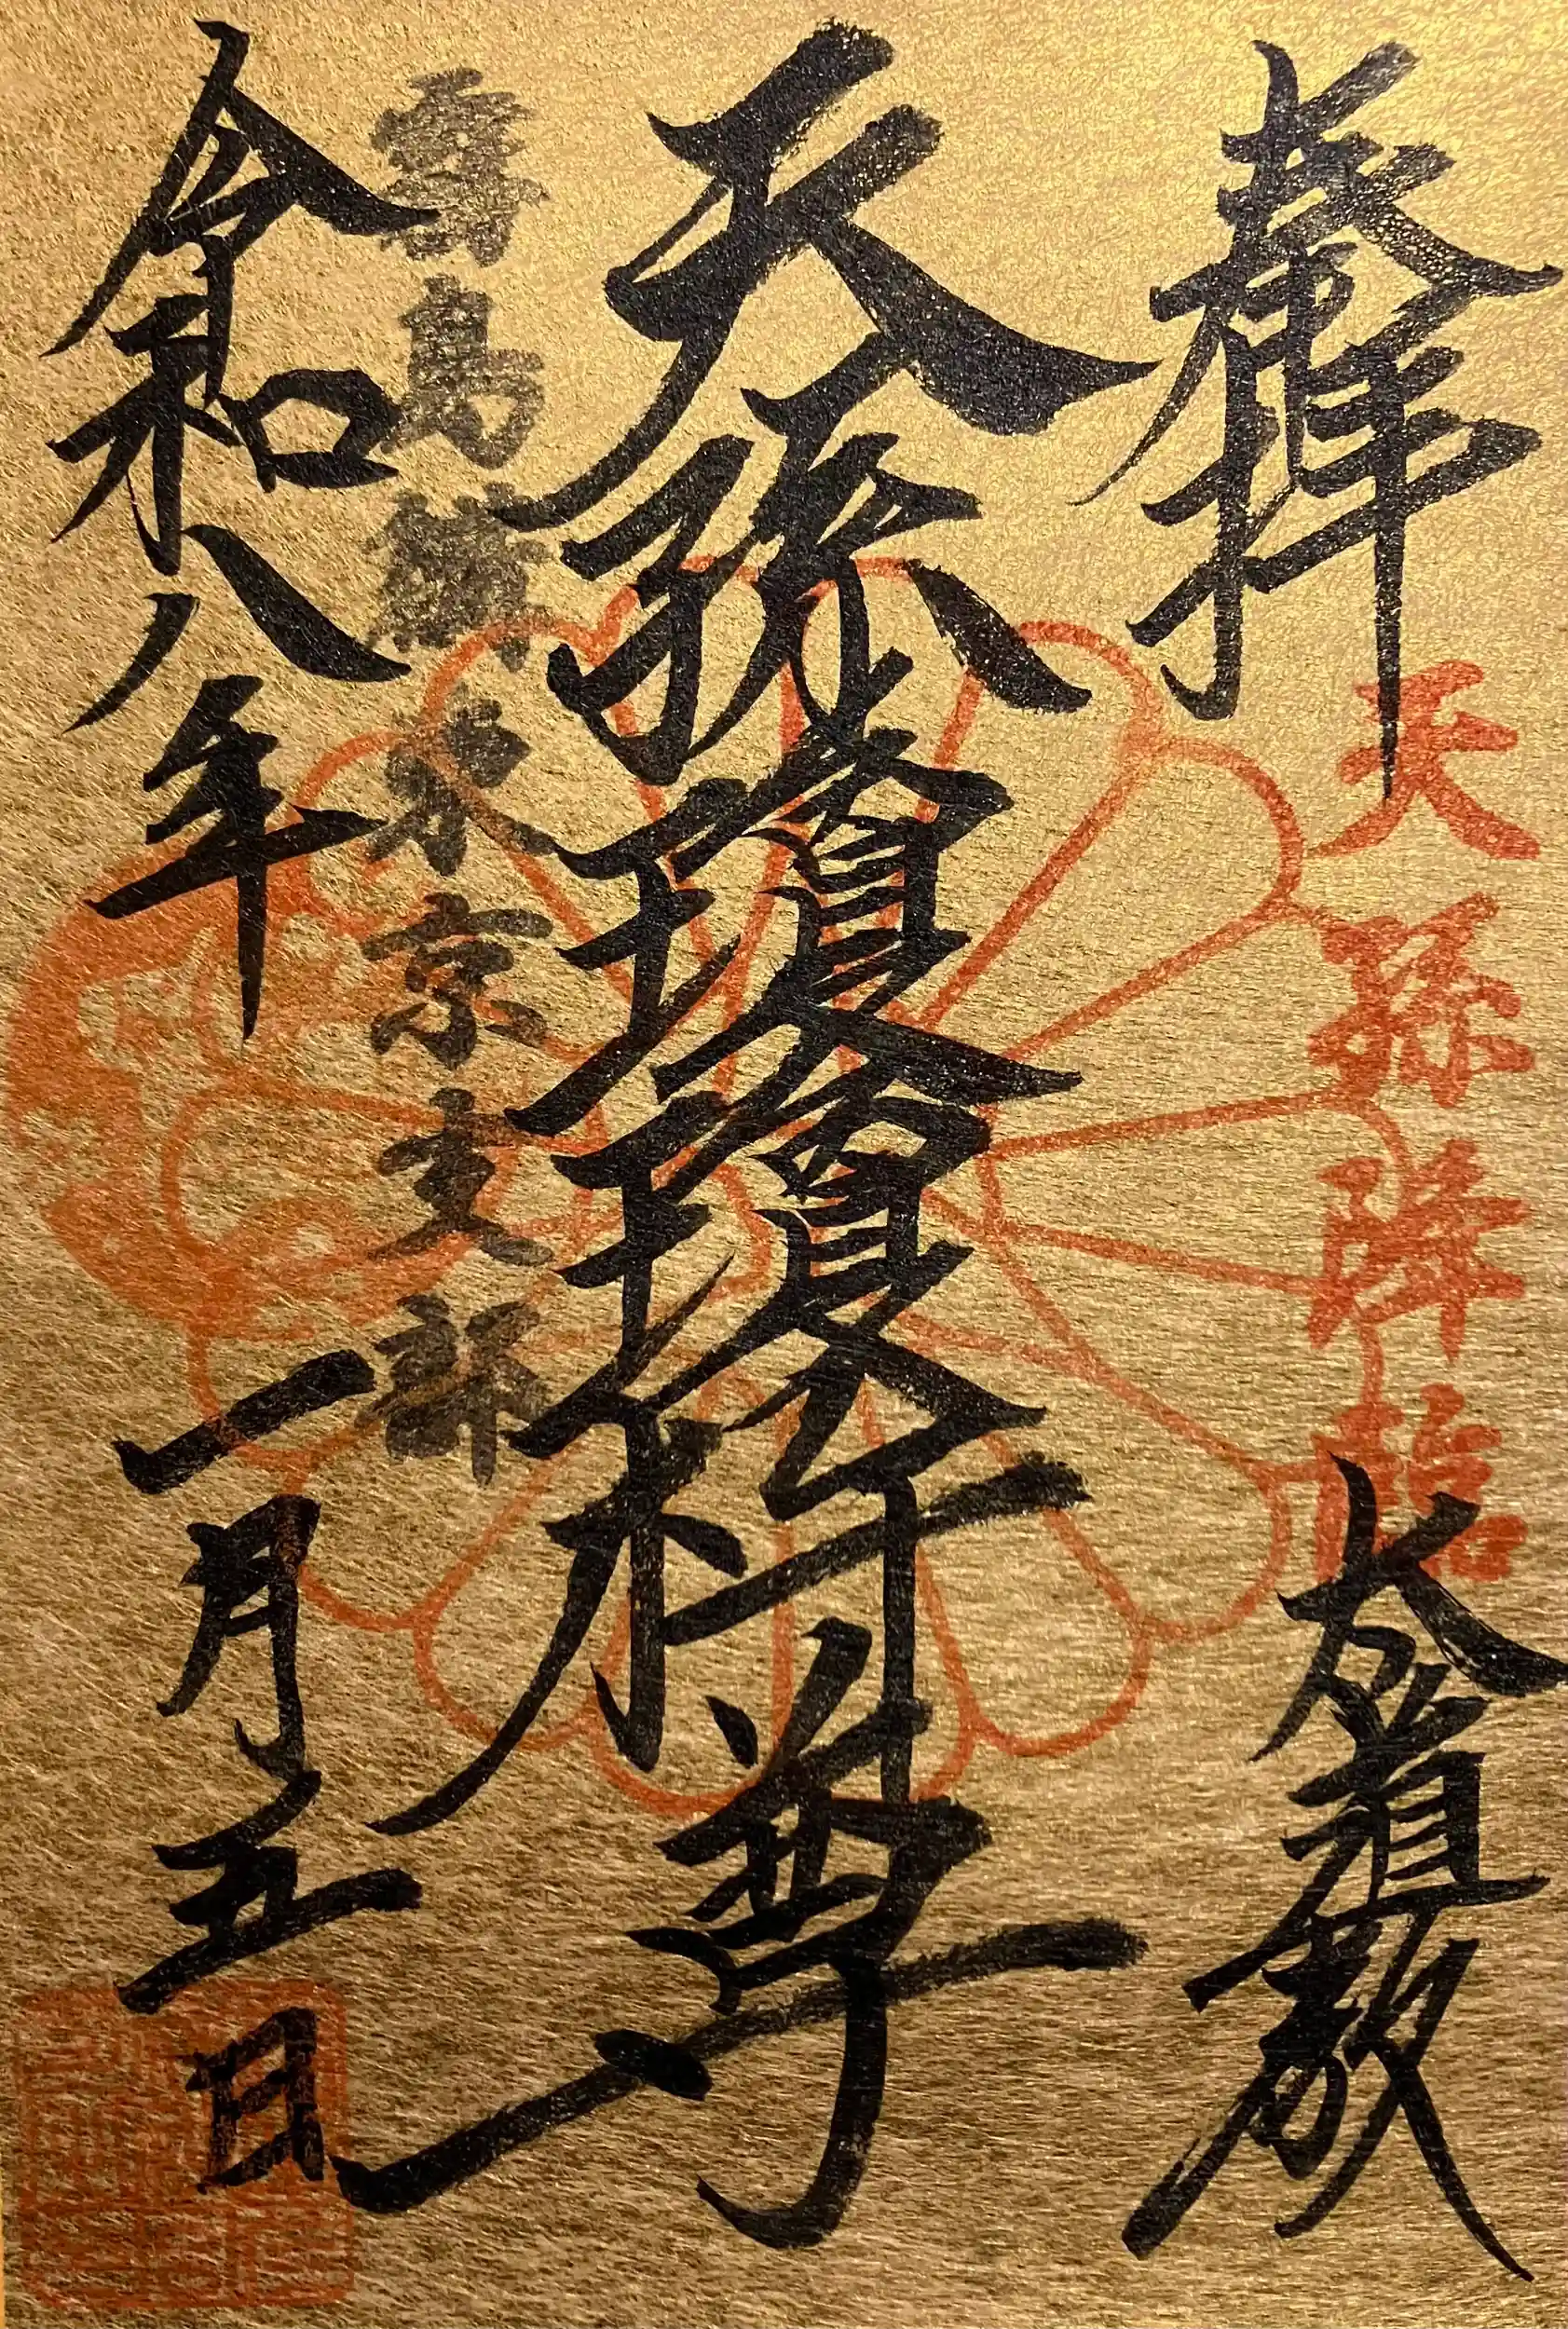 奉拝
天孫降臨
大道教
天孫瓊瓊杵尊
霧島 東京支部
令和八年
一月五日